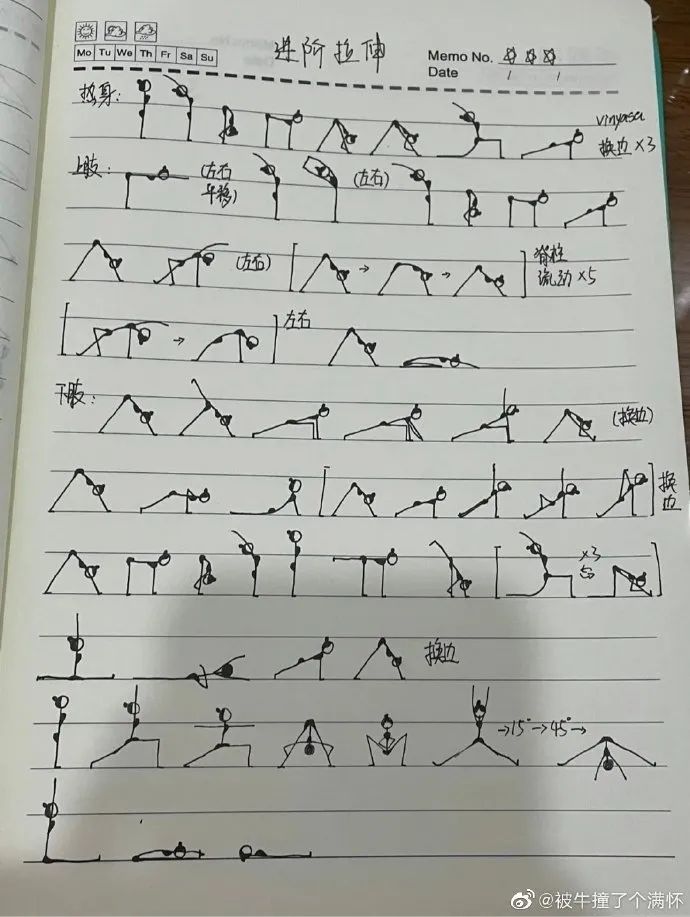 Mo Tu We Th Fr Sa Su
进阶拉伸
Memo No.
Date / /
热身：
vinyasa
换边 ×3
上肢：
(左右
平移)
(左右)
(左右)
脊柱
流动 ×5
左右
下肢：
(换边)
换边
×3
换边
→15°→45°→
@被牛撞了个满怀